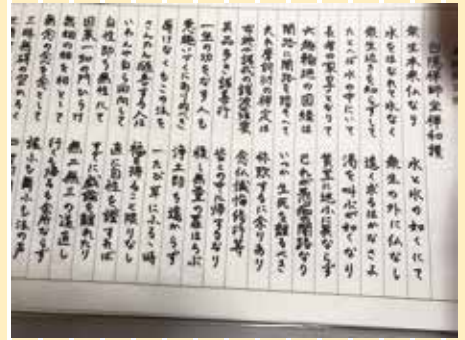 白隠禅師坐禅和讃
衆生本来仏なり 水と氷の如くにて
水をはなれて氷なく 衆生の外に仏なし
衆生近きを知らずして 遠く求るはかなさよ
たとへば水の中にいて 渇を叫ぶが如くなり
長者の家の子となりて 貧里に迷うに異ならず
六趣輪廻の因縁は 己が愚痴の闇路なり
闇路に闇路を踏そへて いつか生死を離るべき
夫れ摩訶衍の禅定は 称歎するに余りあり
布施や持戒の諸波羅蜜 念仏懺悔修行等
其品多き諸善行 皆この中に帰するなり
一座の功をなす人も 積し無量の罪ほろぶ
悪趣いづくにありぬべき 浄土即ち遠からず
辱なくもこの法を 一たび耳にふるる時
さんたん随喜する人は 福を得ること限りなし
いわんや自ら回向して 直に自性を証すれば
自性即ち無性にて すでに戯論を離れたり
因果一如の門ひらけ 無二無三の道直し
無相の相を相として 行くも帰るも余所ならず
無念の念を念として 謡ふも舞ふも法の声
三昧無碍の空ひろく